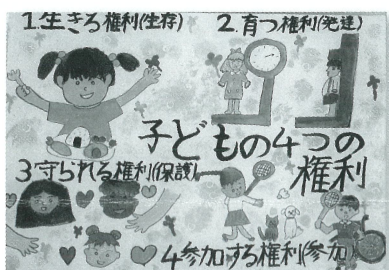 1.生きる権利(生存)
2.育つ権利(発達)
子どもの4つの
権利
3守られる権利(保護)
4参加する権利(参加)